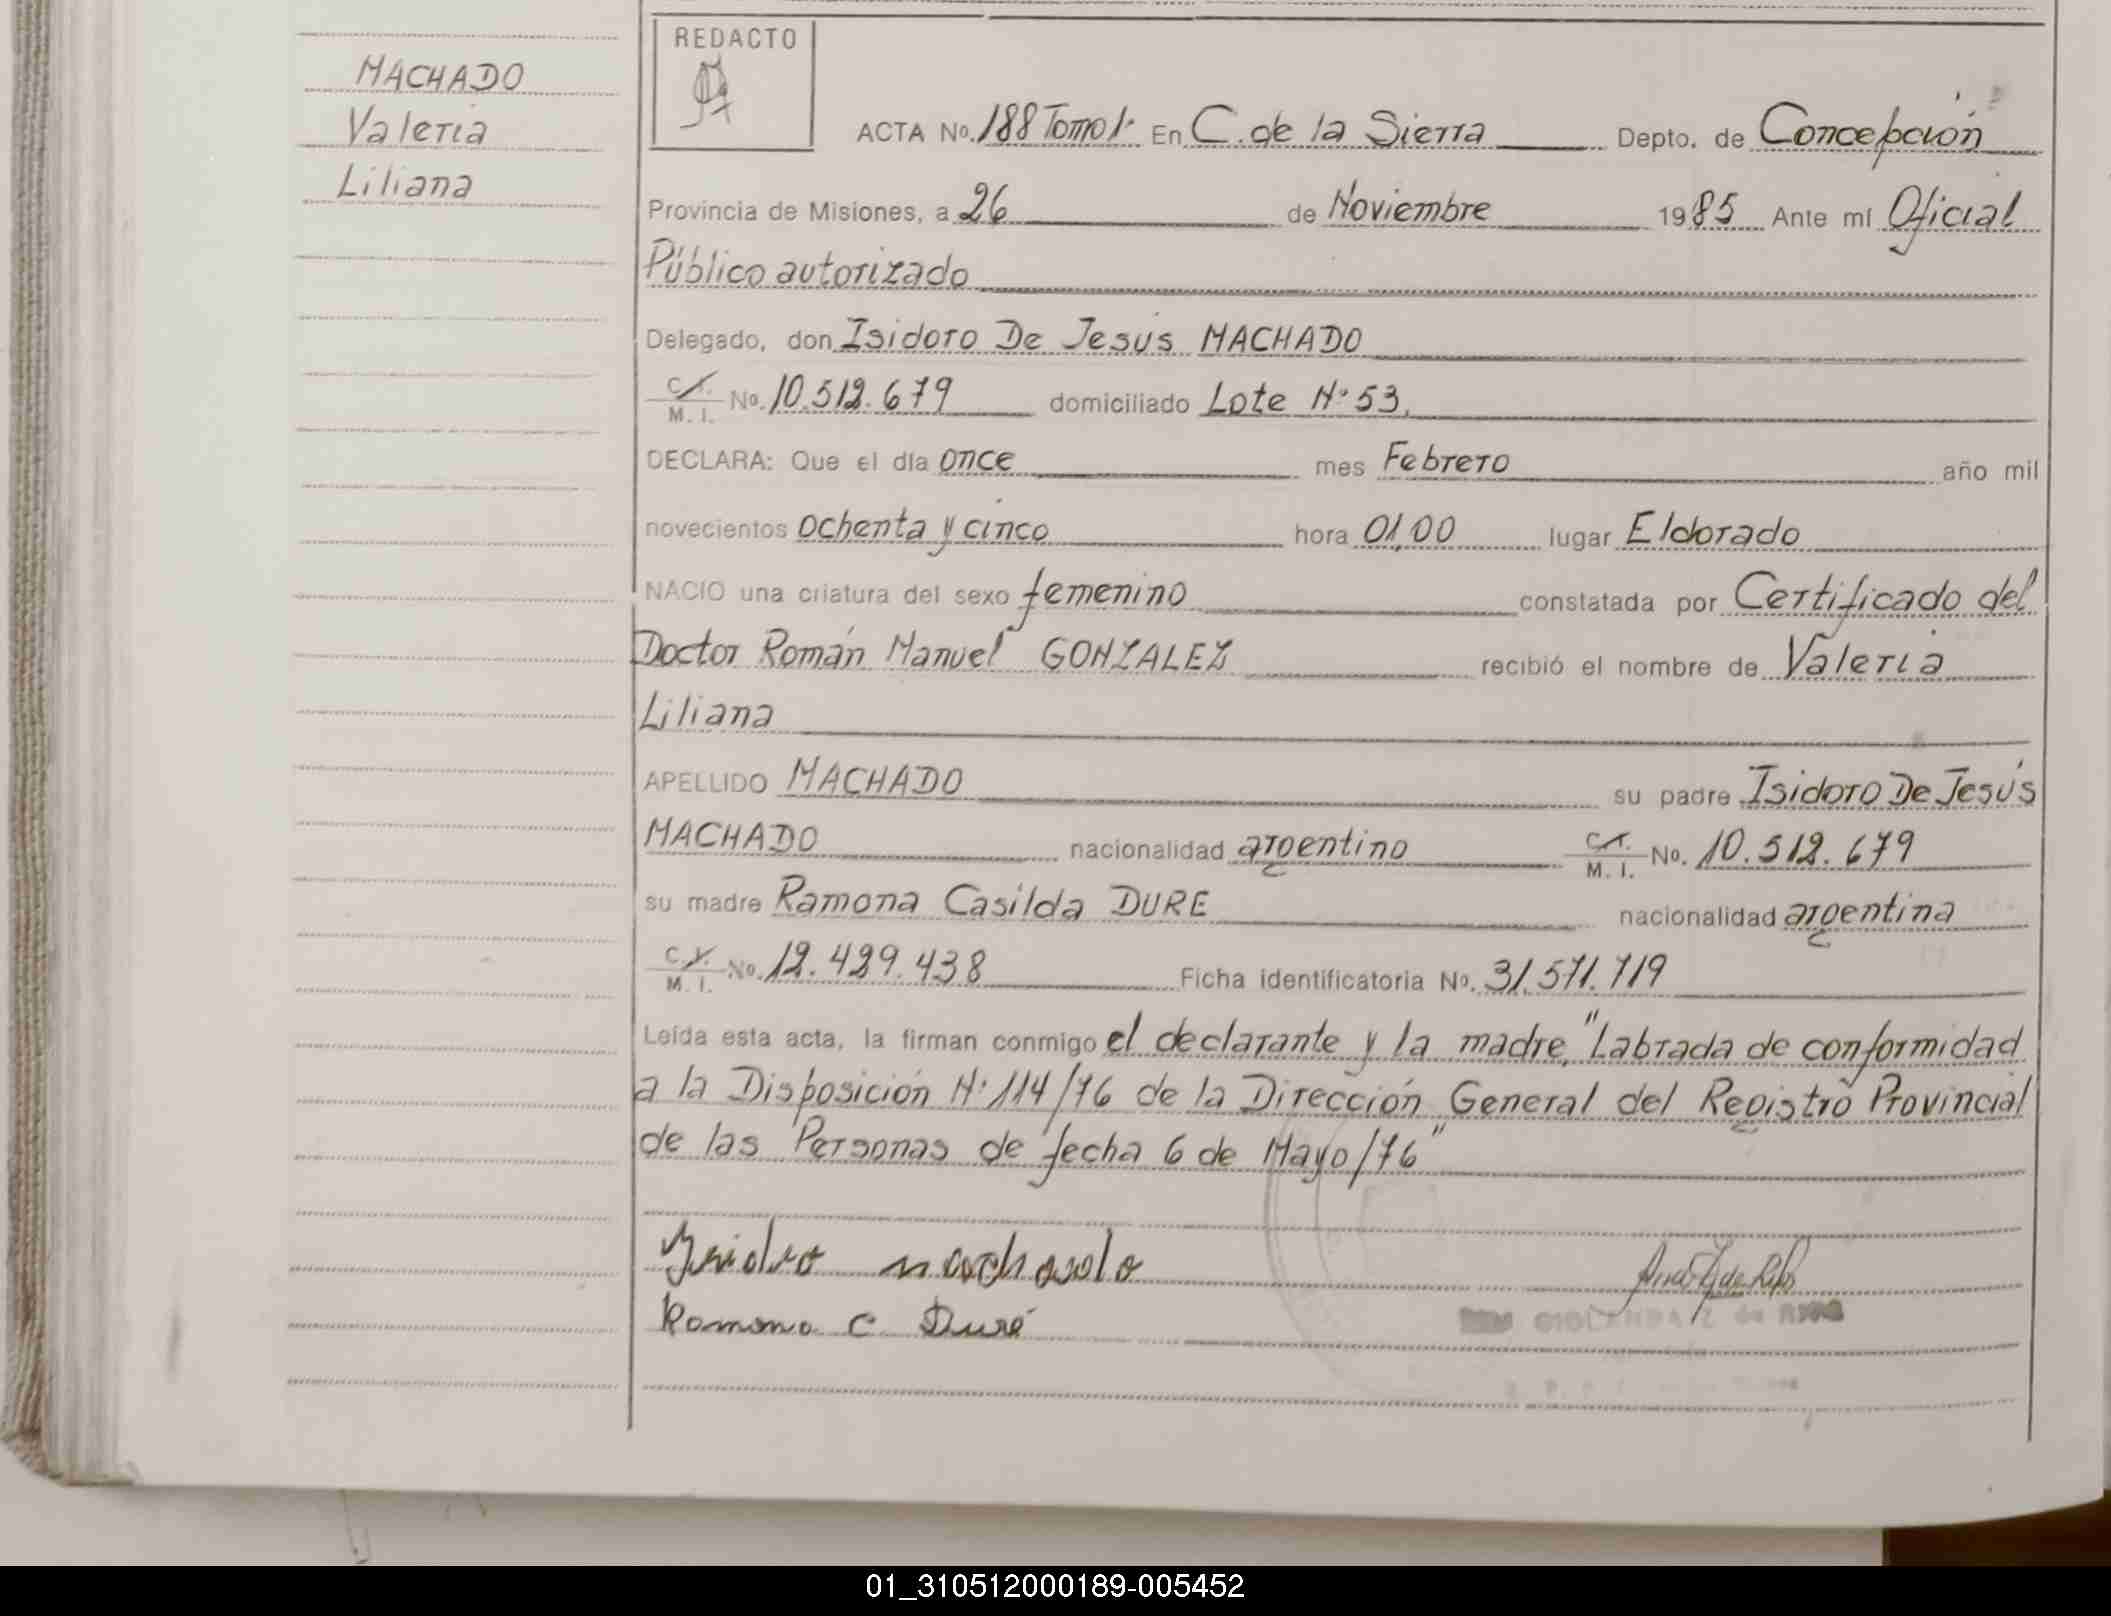 MACHADO
Valeria
Liliana
REDACTO
ACTA No. 188 Tomo 1º En C. de la Sierra Depto. de Concepción
Provincia de Misiones, a 26 de Noviembre 1985 Ante mí Oficial
Público autorizado
Delegado, don Isidoro De Jesús MACHADO
C.I. M.I. No. 10.512.679 domiciliado Lote Nº 53.
DECLARA: Que el día once mes Febrero año mil
novecientos ochenta y cinco hora 01,00 lugar Eldorado
NACIO una criatura del sexo femenino constatada por Certificado del
Doctor Román Manuel GONZALEZ recibió el nombre de Valeria
Liliana
APELLIDO MACHADO su padre Isidoro De Jesús
MACHADO nacionalidad argentino C.I. M.I. No. 10.512.679
su madre Ramona Casilda DURE nacionalidad argentina
C.I. M.I. No. 12.429.438 Ficha identificatoria No. 31.571.719
Leída esta acta, la firman conmigo el declarante y la madre, "Labrada de conformidad
a la Disposición Nº 114/76 de la Dirección General del Registro Provincial
de las Personas de fecha 6 de Mayo/76"
Isidro machado
Ramona C Duré
01_310512000189-005452